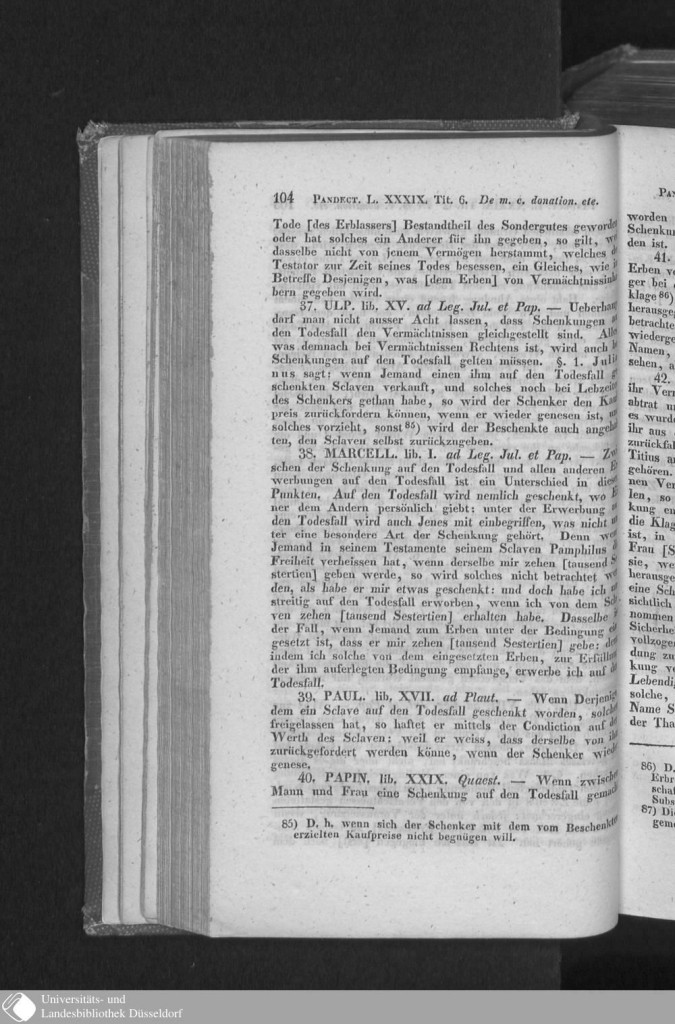 104 PANDECT. L. XXXIX. Tit. 6. De m. c. donation. etc.
Tode [des Erblassers] Bestandtheil des Sondergutes geworden
oder hat solches ein Anderer für ihn gegeben, so gilt,
dasselbe nicht von jenem Vermögen herstammt, welches
Testator zur Zeit seines Todes besessen, ein Gleiches, wie
Betreffs Desjenigen, was [dem Erben] von
bern gegeben wird.
37. ULP. lib. XV. ad Leg. Jul. et Pap. — Ueberhaupt
darf man nicht ausser Acht lassen, dass Schenkungen
den Todesfall den Vermächtnissen gleichgestellt sind. Alles
was demnach bei Vermächtnissen Rechtens ist, wird auch
Schenkungen auf den Todesfall gelten müssen. §. 1. Julia
nus sagt: wenn Jemand einen ihm auf den Todesfall
schenkten Sclaven verkauft, und solches noch bei Lebzeiten
des Schenkers gethan habe, so wird der Schenker den Kauf
preis zurückfordern können, wenn er wieder genesen ist,
solches vorzieht, sonst 85) wird der Beschenkte auch
ten, den Sclaven selbst zurückzugeben.
38. MARCELL. lib. I. ad Leg. Jul. et Pap. — Zwi
schen der Schenkung auf den Todesfall und allen anderen
werbungen auf den Todesfall ist ein Unterschied in diesen
Punkten. Auf den Todesfall wird nemlich geschenkt, wo
ner dem Andern persönlich giebt: unter der Erwerbung
den Todesfall wird auch Jenes mit einbegriffen, was nicht
ter eine besondere Art der Schenkung gehört. Denn
Jemand in seinem Testamente seinem Sclaven Pamphilus
Freiheit verheissen hat, wenn derselbe mir zehen [tausend
stertien] geben werde, so wird solches nicht betrachtet
den, als habe er mir etwas geschenkt: und doch habe ich
streitig auf den Todesfall erworben, wenn ich von dem
ven zehen [tausend Sestertien] erhalten habe. Dasselbe
der Fall, wenn Jemand zum Erben unter der Bedingung
gesetzt ist, dass er mir zehen [tausend Sestertien] gebe:
indem ich solche von dem eingesetzten Erben, zur Erfüllung
der ihm auferlegten Bedingung empfange, erwerbe ich auf
Todesfall.
39. PAUL. lib. XVII. ad Plaut. — Wenn Derjenige
dem ein Sclave auf den Todesfall geschenkt worden,
freigelassen hat, so haftet er mittels der Condiction auf
Werth des Sclaven: weil er weiss, dass derselbe von
zurückgefordert werden könne, wenn der Schenker wieder
genese.
40. PAPIN. lib. XXIX. Quaest. — Wenn zwischen
Mann und Frau eine Schenkung auf den Todesfall gemacht
85) D. h. wenn sich der Schenker mit dem vom Beschenkten
erzielten Kaufpreise nicht begnügen will.
worden
Schenkun
den ist.
41.
Erben
ger bei
klage 86)
herausge
betrachte
wiederge
Namen,
sehen,
42.
ihr Ver
abtrat
es wurd
ihr aus
zurückfal
Titius
gehören.
nen Ver
len, so
kung
die Klag
ist, in
Frau [S
sie, we
herausge
eine Sch
sichtlich
nommen
Sicherhe
vollzogen
dung zu
kung
Lebendi
solche,
Name S
der Tha
86) D.
Erbr
schaf
Subs
87) Di
gem
Universitäts- und
Landesbibliothek Düsseldorf